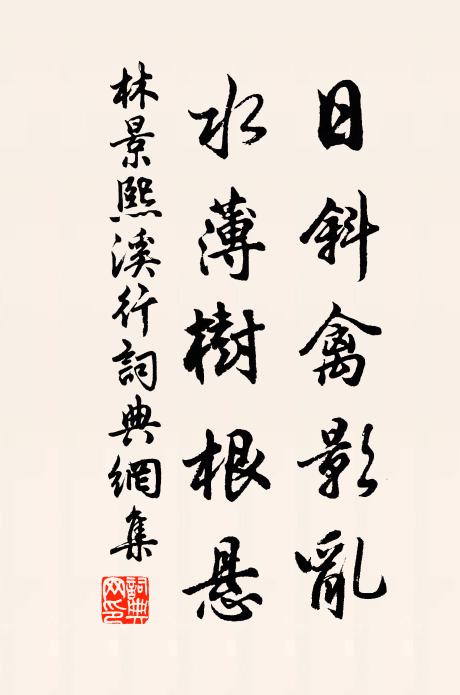 日斜禽影亂
水薄樹根懸
林景熙溪行詞典網集
詞典網印